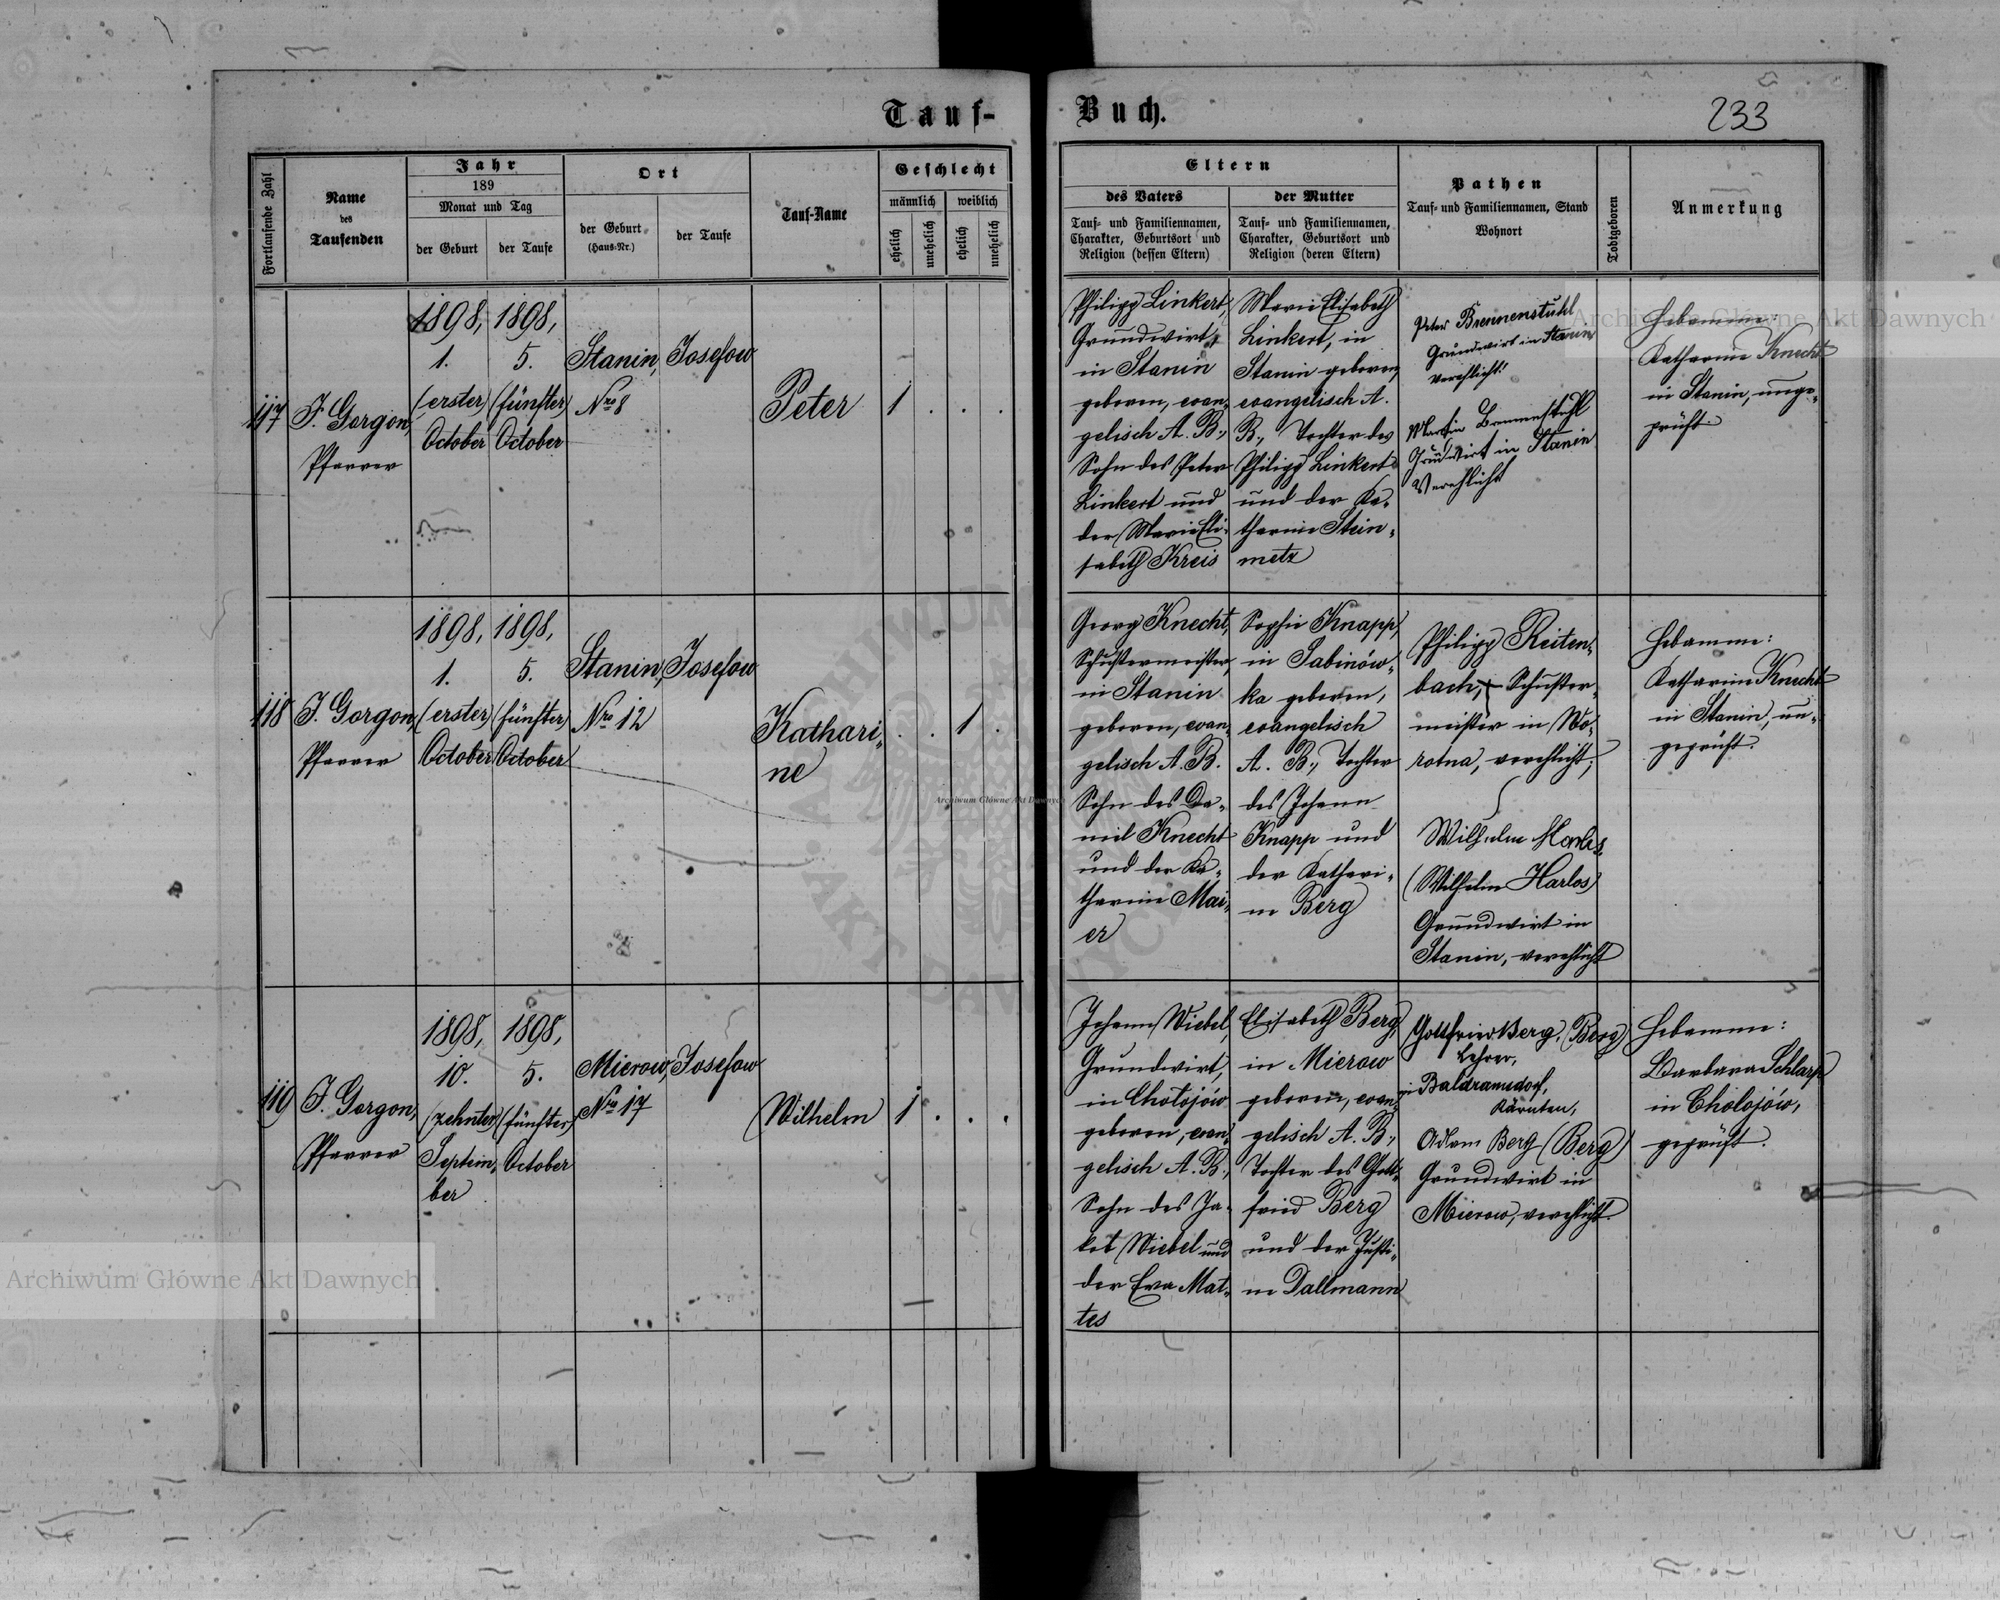 Tauf-Buch.
233
Fortlaufende Zahl
Name
des
Taufenden
Jahr
189
Monat und Tag
der Geburt
der Taufe
Ort
der Geburt
(Haus-Nr.)
der Taufe
Tauf-Name
Geschlecht
männlich
weiblich
ehelich
unehelich
ehelich
unehelich
Eltern
des Vaters
Tauf- und Familiennamen,
Charakter, Geburtsort und
Religion (dessen Eltern)
der Mutter
Tauf- und Familiennamen,
Charakter, Geburtsort und
Religion (deren Eltern)
Pathen
Tauf- und Familiennamen, Stand
Wohnort
Todtgeboren
Anmerkung
117
J. Gorgon,
Pfarrer
1898,
1.
(erster)
October
1898,
5.
(fünfter)
October
Stanin,
Nro 8
Josefow
Peter
1 . . .
Philipp Linkert,
Grundwirt,
in Stanin
geboren, evan-
gelisch A. B.,
Sohn des Peter
Linkert und
der Marie Eli-
sabeth Kreis
Marie Elisabeth
Linkert, in
Stanin geboren,
evangelisch A.
B., Tochter des
Philipp Linkert
und der Ka-
tharine Stein-
metz
Peter Brennenstuhl
Grundwirt in Stanin
verehlicht!
Martin Brennenstuhl
Grundwirt in Stanin
Verehlicht
Hebamme:
Katharine Knecht
in Stanin, unge-
prüft.
118
J. Gorgon,
Pfarrer
1898,
1.
(erster)
October
1898,
5.
(fünfter)
October
Stanin,
Nro 12
Josefow
Kathari-
ne
. . 1 .
Georg Knecht,
Schustermeister,
in Stanin
geboren, evan-
gelisch A. B.
Sohn des Da-
niel Knecht
und der Ka-
tharine Mai-
er
Sophie Knapp,
in Sabinów-
ka geboren,
evangelisch
A. B., Tochter
des Johann
Knapp und
der Kathari-
ne Berg
Philipp Reiten-
bach, Schuster-
meister in Wo-
rotna, verehlicht;
Wilhelm Harlos,
(Wilhelm Harlos)
Grundwirt in
Stanin, verehlicht
Hebamme:
Katharine Knecht
in Stanin, un-
geprüft.
119
J. Gorgon,
Pfarrer
1898,
10.
(zehnter)
Septem-
ber
1898,
5.
(fünfter)
October
Mierow,
Nro 17
Josefow
Wilhelm
1 . . .
Johann Wiebel,
Grundwirt,
in Chołojów
geboren, evan-
gelisch A. B.,
Sohn des Ja-
kob Wiebel und
der Eva Mat-
tes
Elisabeth Berg,
in Mierow
geboren, evan-
gelisch A. B.,
Tochter des Gott-
fried Berg
und der Justi-
ne Dallmann
Gottfried Berg, (Berg)
Lehrer,
in Baldramsdorf,
Kärnten,
Adam Berg (Berg)
Grundwirt in
Mierow, verehlicht.
Hebamme:
Barbara Schlarp
in Cholojów,
geprüft.
Archiwum Główne Akt Dawnych
Archiwum Główne Akt Dawnych
Archiwum Główne Akt Dawnych